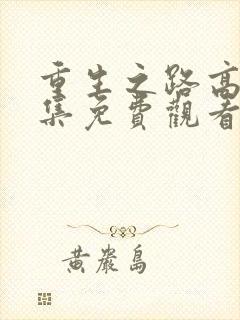 重生之路高
集免費觀看
黃巖島